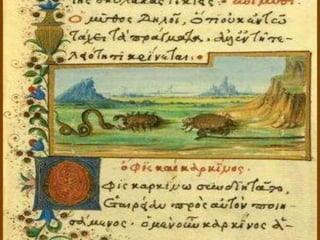 Ὁ μῦθος δηλοῖ, ὅτι οὐκ ἐν τῷ
τάχει τὰ πράγματα, ἀλλ' ἐν τῇ τε
λειότητι κρίνεται.
Ὄφις καὶ καρκίνος.
Ὄφις καρκίνω συνδιητᾶτο,
πρὸς αὐτὸν ποιη
σάμενος. ὁ μὲν οὖν καρκίνος ἁ